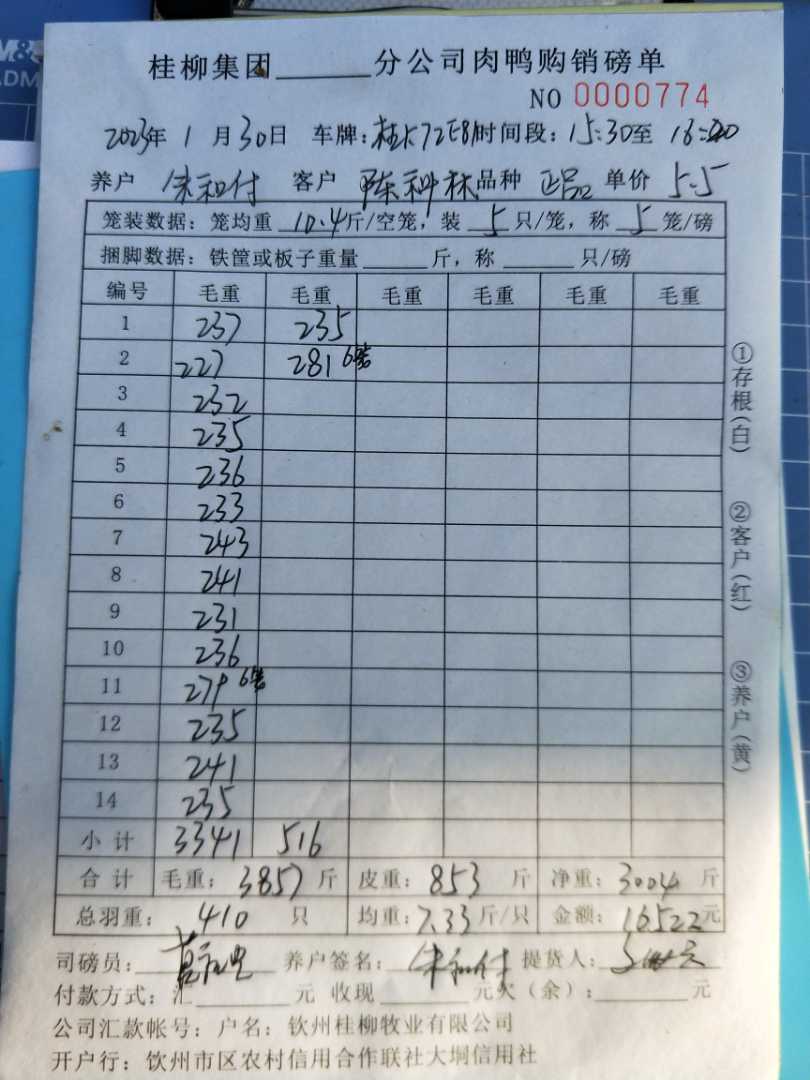 桂柳集团______分公司肉鸭购销磅单
NO 0000774
2023年 1 月 30日 车牌: 时间段: 15:30至 16:00
养户 朱和付 客户 陈科林 品种 正品 单价 5.5
笼装数据: 笼均重 10.4斤/空笼, 装 5 只/笼, 称 5 笼/磅
捆脚数据: 铁筐或板子重量 ______ 斤, 称 ______ 只/磅
编号 毛重 毛重 毛重 毛重 毛重 毛重
1 237 235
2 227 281 6笼
3 232
4 235
5 236
6 233
7 243
8 241
9 231
10 236
11 279 6笼
12 235
13 241
14 235
小计 3341 516
合计 毛重: 3857 斤 皮重: 853 斤 净重: 3004 斤
总羽重: 410 只 均重: 7.33 斤/只 金额: 16522 元
司磅员: 养户签名: 朱和付 提货人:
付款方式: 汇______元 收现______元欠(余): ______元
公司汇款帐号: 户名: 钦州桂柳牧业有限公司
开户行: 钦州市区农村信用合作联社大垌信用社
①存根(白)
②客户(红)
③养户(黄)